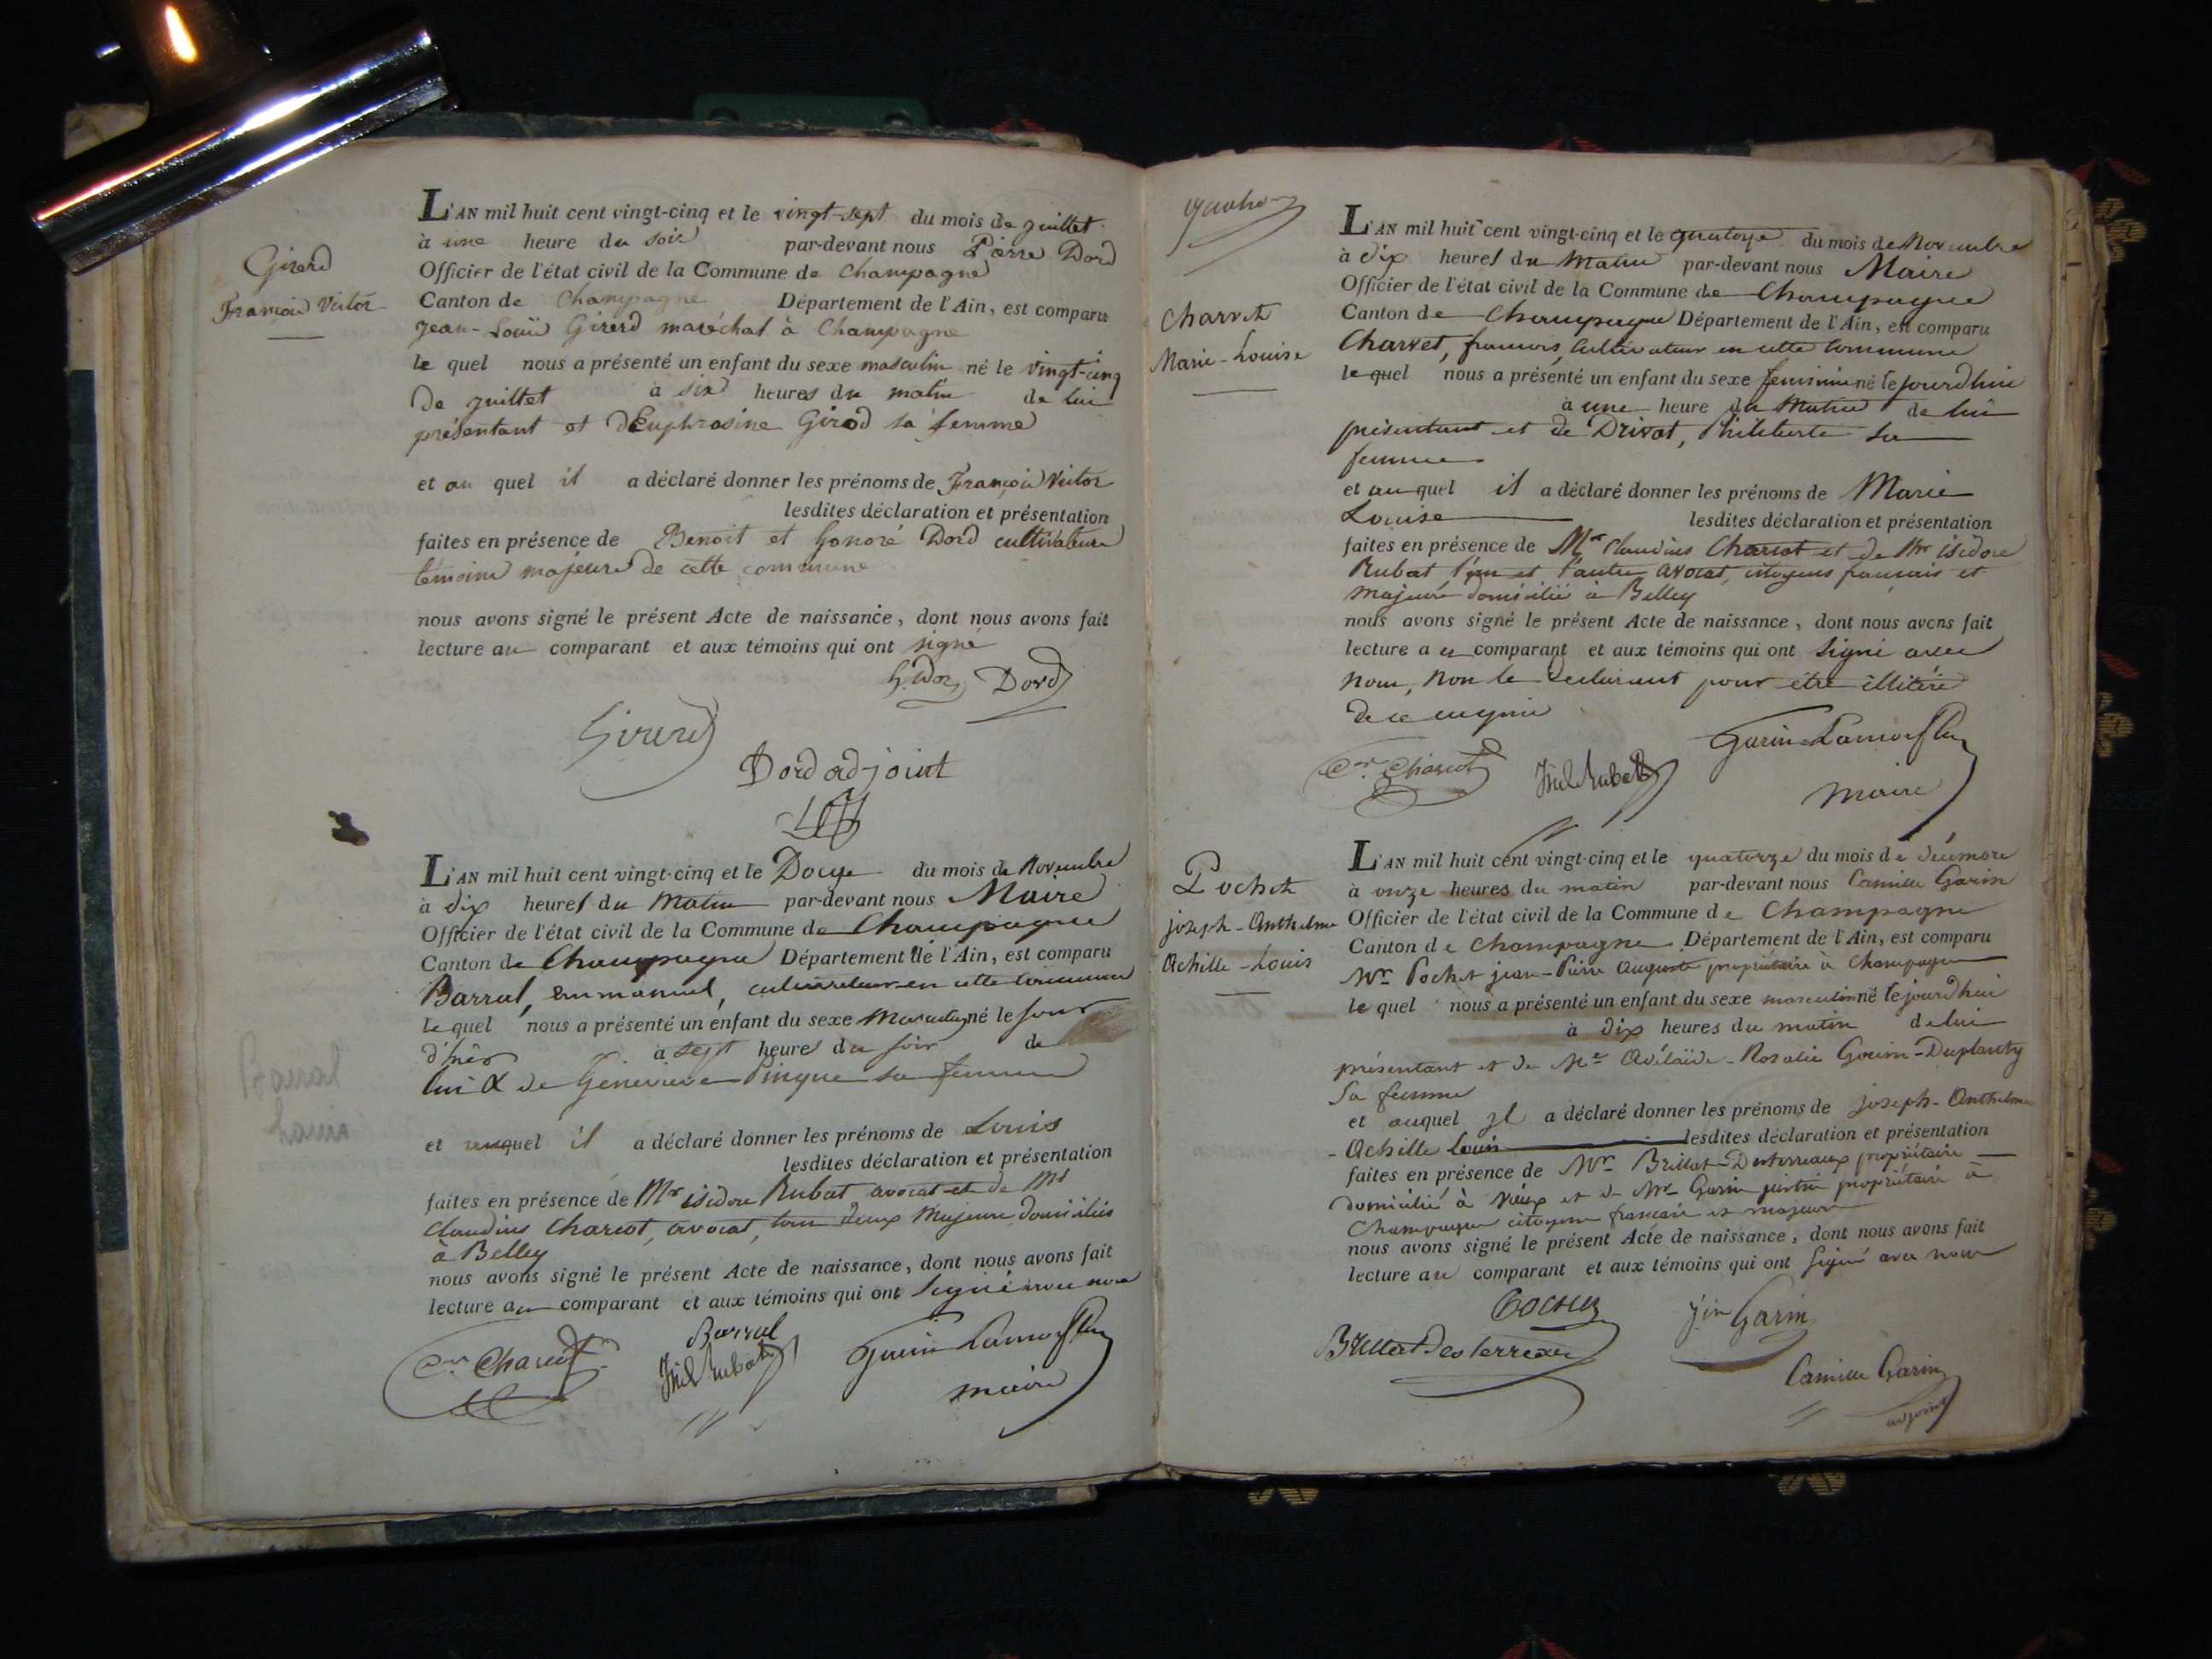 Girerd
François Victor
L'AN mil huit cent vingt-cinq et le vingt-sept du mois de juillet
à une heure du soir par-devant nous Pierre Dord
Officier de l'état civil de la Commune de Champagne
Canton de Champagne Département de l'Ain, est comparu
jean-Louis Girerd maréchal à Champagne
le quel nous a présenté un enfant du sexe masculin né le vingt-cinq
de juillet à six heures du matin de lui
présentant et d'Euphrosine Girod sa femme
et au quel il a déclaré donner les prénoms de François Victor
lesdites déclaration et présentation
faites en présence de Benoit et honoré Dord cultivateurs
témoins majeurs de cette commune
nous avons signé le présent Acte de naissance, dont nous avons fait
lecture au comparant et aux témoins qui ont signé
h. Dord Dord
Girerd
Dord adjoint
L'AN mil huit cent vingt-cinq et le Douze du mois de Novembre
à dix heures du Matin par-devant nous Maire
Officier de l'état civil de la Commune de Champagne
Canton de Champagne Département de l'Ain, est comparu
Barral, emmanuel, cultivateur en cette commune
le quel nous a présenté un enfant du sexe Masculin né le jour
d'hier à sept heures du soir de
lui & de Genevieve Pingue sa femme
et auquel il a déclaré donner les prénoms de Louis
lesdites déclaration et présentation
faites en présence de Mr isidore Rubat avocat et de Mr
Claudius Charcot, avocat, tous deux Majeurs domiciliés
à Belley
nous avons signé le présent Acte de naissance, dont nous avons fait
lecture au comparant et aux témoins qui ont signé avec nous
Barral
Cs Charcot Isid Rubat Garin Lamorflan
maire
Charvet
Marie-Louise
L'AN mil huit cent vingt-cinq et le quatorze du mois de Novembre
à dix heures du Matin par-devant nous Maire
Officier de l'état civil de la Commune de Champagne
Canton de Champagne Département de l'Ain, est comparu
Charvet, francois, Cultivateur en cette commune
le quel nous a présenté un enfant du sexe feminin né le jourdhui
à une heure du Matin de lui
présentant et de Drivet, Philiberte sa
femme
et au quel il a déclaré donner les prénoms de Marie
Louise lesdites déclaration et présentation
faites en présence de Mr Claudius Charcot et de Mr isidore
Rubat l'un et l'autre avocat, citoyens francais et
majeurs domicilié à Belley
nous avons signé le présent Acte de naissance, dont nous avons fait
lecture au comparant et aux témoins qui ont signé avec
nous, non le declarant pour être illitéré
de ce enquis
Cs Charcot Isid Rubat Garin Lamorflan
maire
Pochet
joseph-Anthelme
Achille-Louis
L'AN mil huit cent vingt-cinq et le quatorze du mois de décembre
à onze heures du matin par-devant nous Camille Garin
Officier de l'état civil de la Commune de Champagne
Canton de Champagne Département de l'Ain, est comparu
Mr Pochet jean-Pierre Auguste propriétaire à Champagne
le quel nous a présenté un enfant du sexe masculin né le jourdhui
à dix heures du matin de lui
présentant et de Me Adélaïde-Rosalie Gouin-Duplanty
sa femme
et auquel il a déclaré donner les prénoms de joseph-Anthelme
-Achille Louis lesdites déclaration et présentation
faites en présence de Mr Brillat-Desterreaux propriétaire
domicilié à Vieux et de Mr Garin justin propriétaire à
Champagne citoyens français et majeurs
nous avons signé le présent Acte de naissance, dont nous avons fait
lecture au comparant et aux témoins qui ont signé avec nous
Pochet jin Garin
Brillat Desterreaux
Camille Garin
adjoint